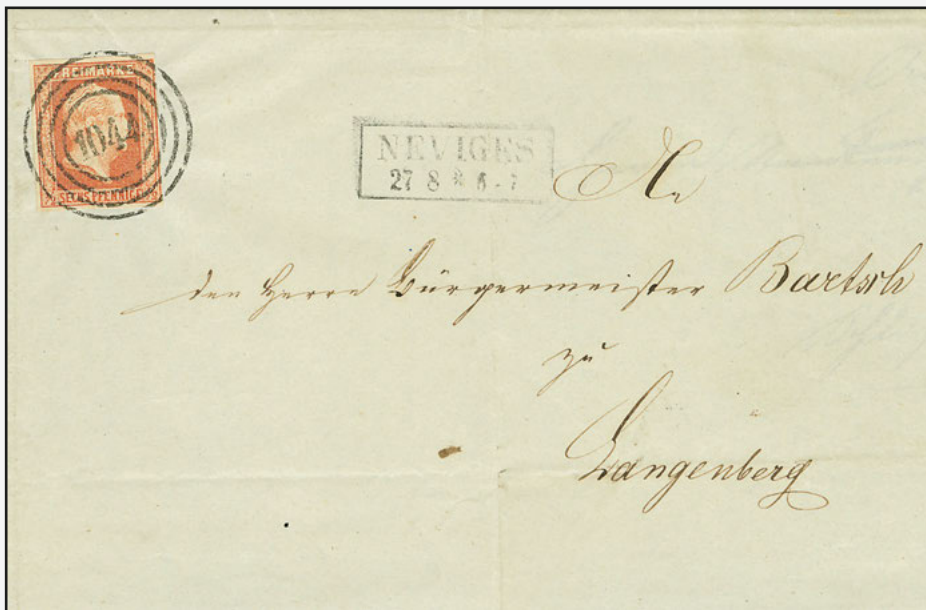 FREIMARKE
1044
SECHS PFENNIGE
NEVIGES
27 8 * 6-7
An
den Herrn Bürgermeister Bartsch
zu
Langenberg